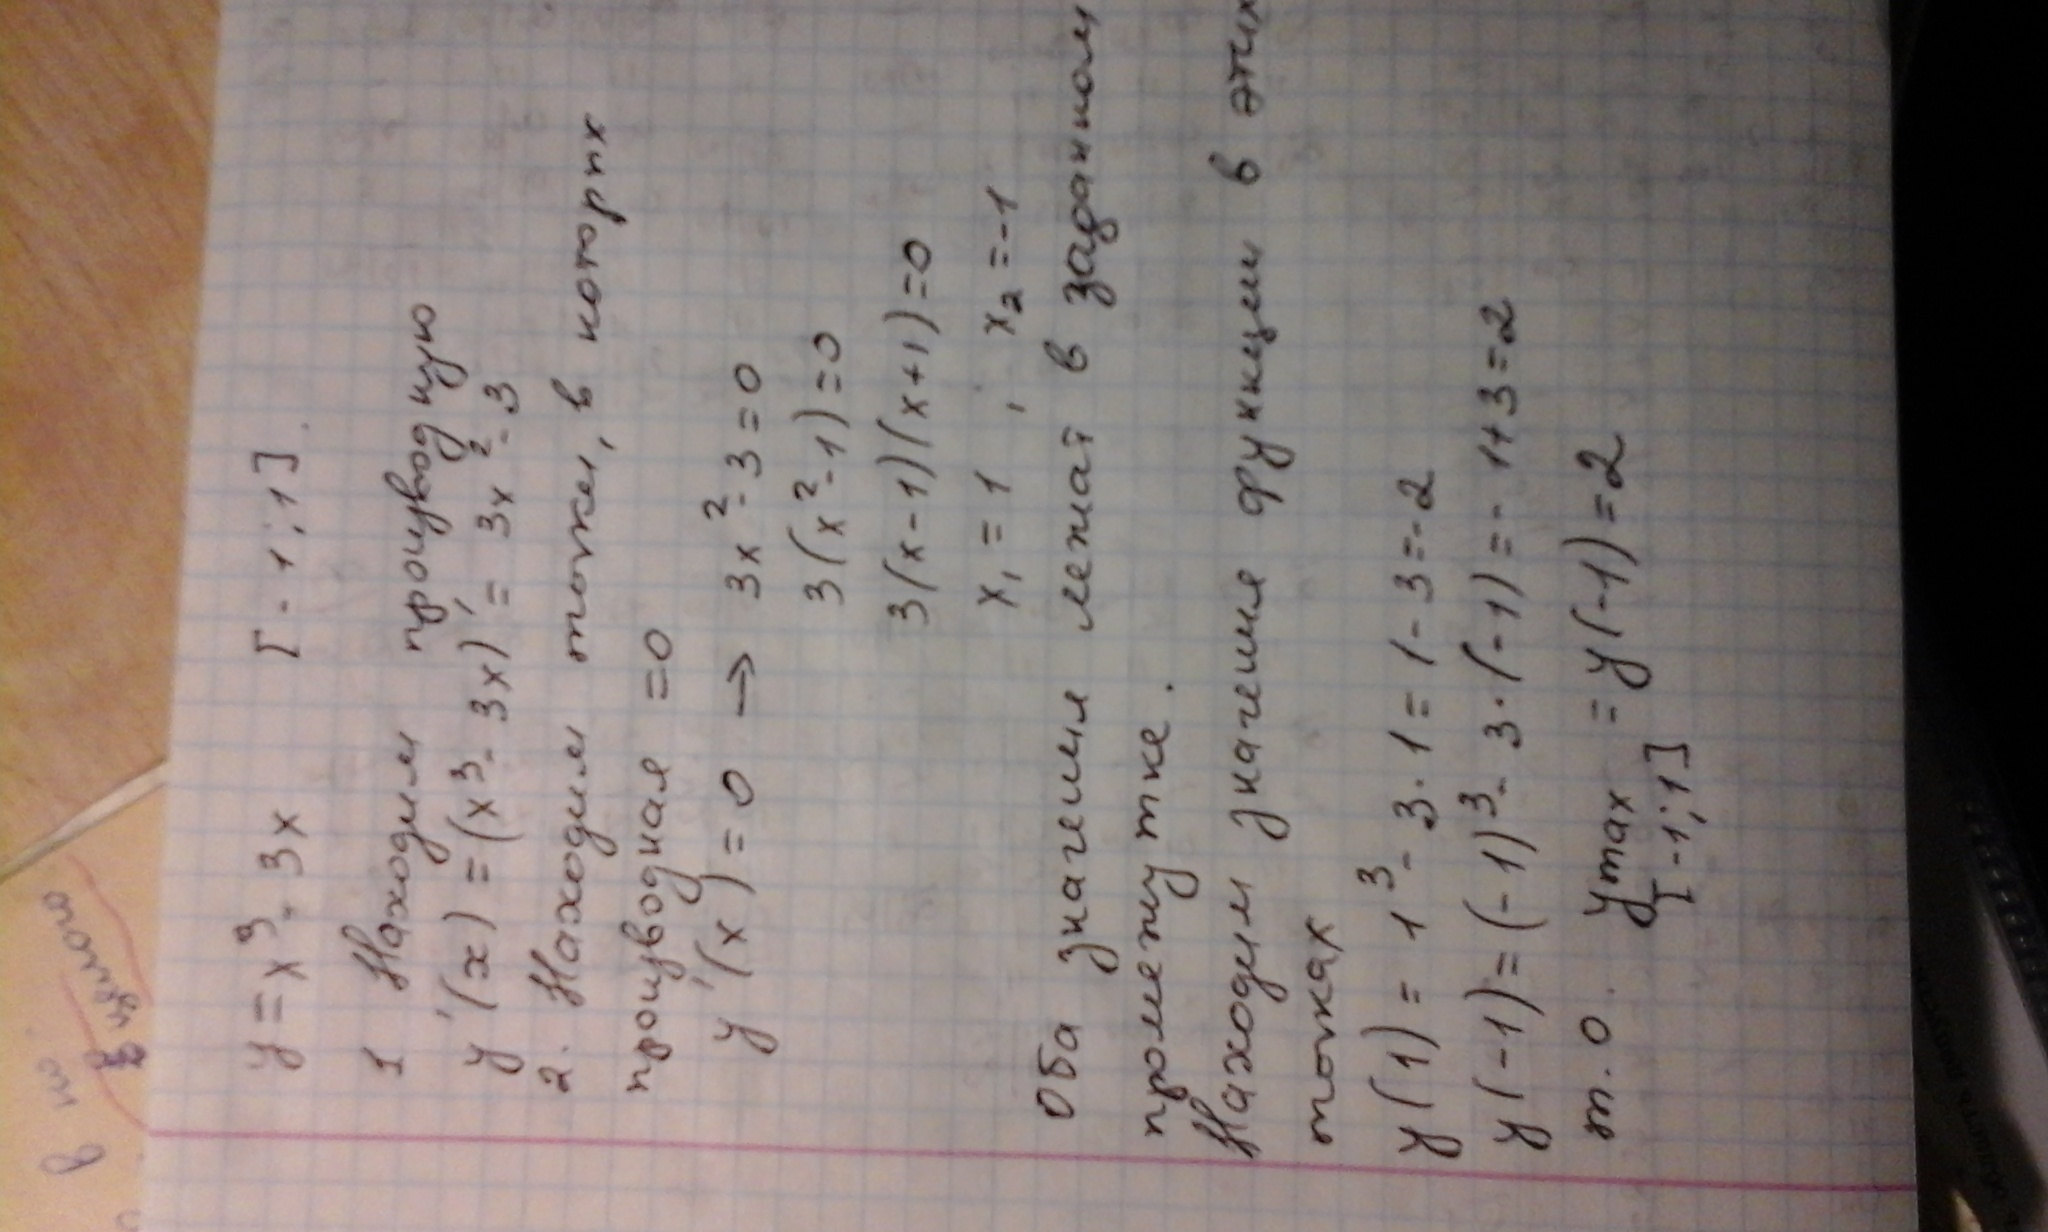 y = x³ - 3x [-1; 1].
1 Находим производную
y'(x) = (x³ - 3x)' = 3x² - 3
2. Находим точки, в которых
производная = 0
y'(x) = 0 → 3x² - 3 = 0
3(x² - 1) = 0
3(x - 1)(x + 1) = 0
x₁ = 1 , x₂ = -1
Оба значения лежат в заданном
промежутке.
Находим значения функции в этих
точках
y(1) = 1³ - 3·1 = 1 - 3 = -2
y(-1) = (-1)³ - 3·(-1) = -1 + 3 = 2
т.о. y max = y(-1) = 2
[-1; 1]